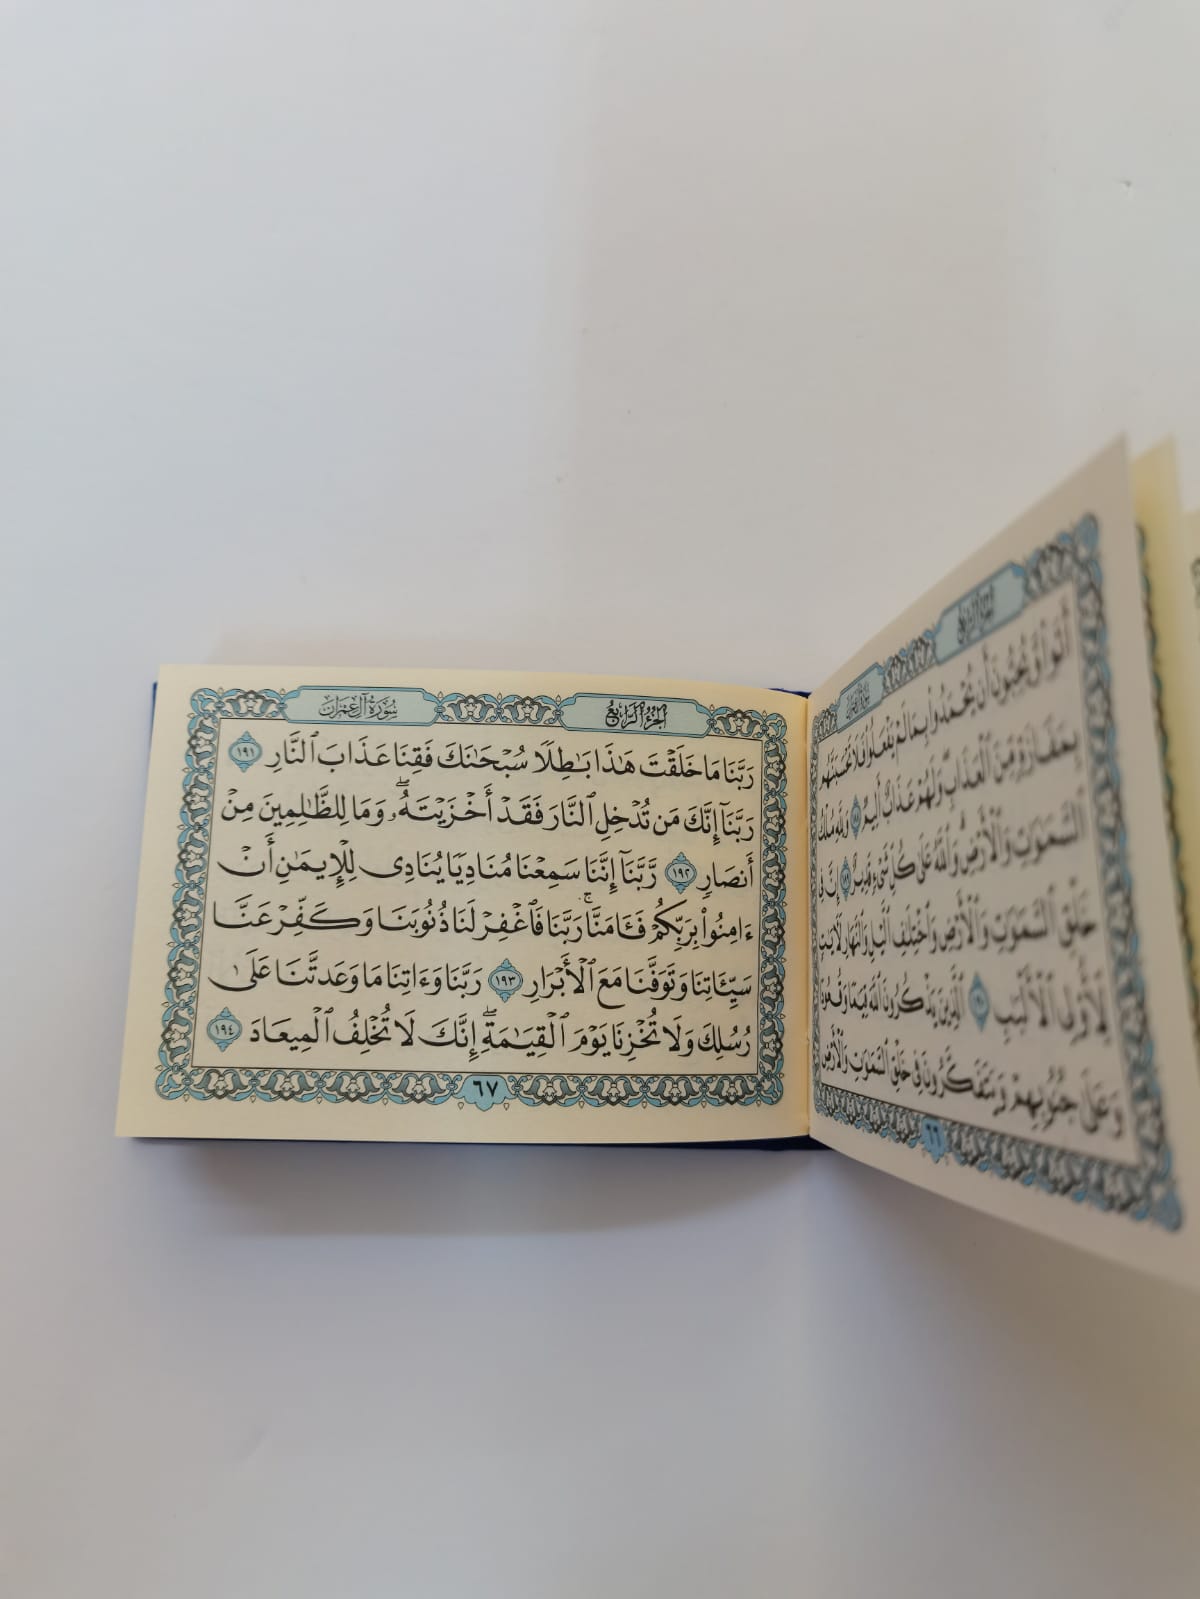 الجزء الرابع
أَتَوا۟ وَّيُحِبُّونَ أَن يُحْمَدُوا۟ بِمَا لَمْ يَفْعَلُوا۟ فَلَا تَحْسَبَنَّهُم
بِمَفَازَةٍ مِّنَ ٱلْعَذَابِ وَلَهُمْ عَذَابٌ أَلِيمٌ ١٨٨ وَلِلَّهِ مُلْكُ
ٱلسَّمَٰوَٰتِ وَٱلْأَرْضِ وَٱللَّهُ عَلَىٰ كُلِّ شَىْءٍ قَدِيرٌ ١٨٩ إِنَّ فِى
خَلْقِ ٱلسَّمَٰوَٰتِ وَٱلْأَرْضِ وَٱخْتِلَٰفِ ٱلَّيْلِ وَٱلنَّهَارِ لَءَايَٰتٍ
لِّأُو۟لِى ٱلْأَلْبَٰبِ ١٩٠ ٱلَّذِينَ يَذْكُرُونَ ٱللَّهَ قِيَٰمًا وَقُعُودًا
وَعَلَىٰ جُنُوبِهِمْ وَيَتَفَكَّرُونَ فِى خَلْقِ ٱلسَّمَٰوَٰتِ وَٱلْأَرْضِ
٦٦
الجزء الرابع سورة آل عمران
رَبَّنَا مَا خَلَقْتَ هَٰذَا بَٰطِلًا سُبْحَٰنَكَ فَقِنَا عَذَابَ ٱلنَّارِ ١٩١
رَبَّنَآ إِنَّكَ مَن تُدْخِلِ ٱلنَّارَ فَقَدْ أَخْزَيْتَهُۥۖ وَمَا لِلظَّٰلِمِينَ مِنْ
أَنصَارٍ ١٩٢ رَّبَّنَآ إِنَّنَا سَمِعْنَا مُنَادِيًا يُنَادِى لِلْإِيمَٰنِ أَنْ
ءَامِنُوا۟ بِرَبِّكُمْ فَـَٔامَنَّاۚ رَبَّنَا فَٱغْفِرْ لَنَا ذُنُوبَنَا وَكَفِّرْ عَنَّا
سَيِّـَٔاتِنَا وَتَوَفَّنَا مَعَ ٱلْأَبْرَارِ ١٩٣ رَبَّنَا وَءَاتِنَا مَا وَعَدتَّنَا عَلَىٰ
رُسُلِكَ وَلَا تُخْزِنَا يَوْمَ ٱلْقِيَٰمَةِۖ إِنَّكَ لَا تُخْلِفُ ٱلْمِيعَادَ ١٩٤
٦٧